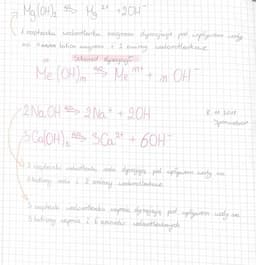 Mg(OH)₂ ⇌ Mg²⁺ + 2OH⁻
1 cząsteczka wodorotlenku magnezu dysocjuje pod wpływem wody
na kation magnezu i 2 aniony wodorotlenkowe.
Schemat dysocjacji
Me(OH)ₘ ⇌ Meᵐ⁺ + m OH⁻
2NaOH ⇌ 2Na⁺ + 2OH
3Ca(OH)₂ ⇌ 3Ca²⁺ + 6OH⁻
2 cząsteczki wodorotlenku sodu dysocjują pod wpływem wody na
2 kationy sodu i 2 aniony wodorotlenkowe
3 cząsteczki wodorotlenku wapnia dysocjują pod wpływem wody na
3 kationy wapnia i 6 anionów wodorotlenkowych